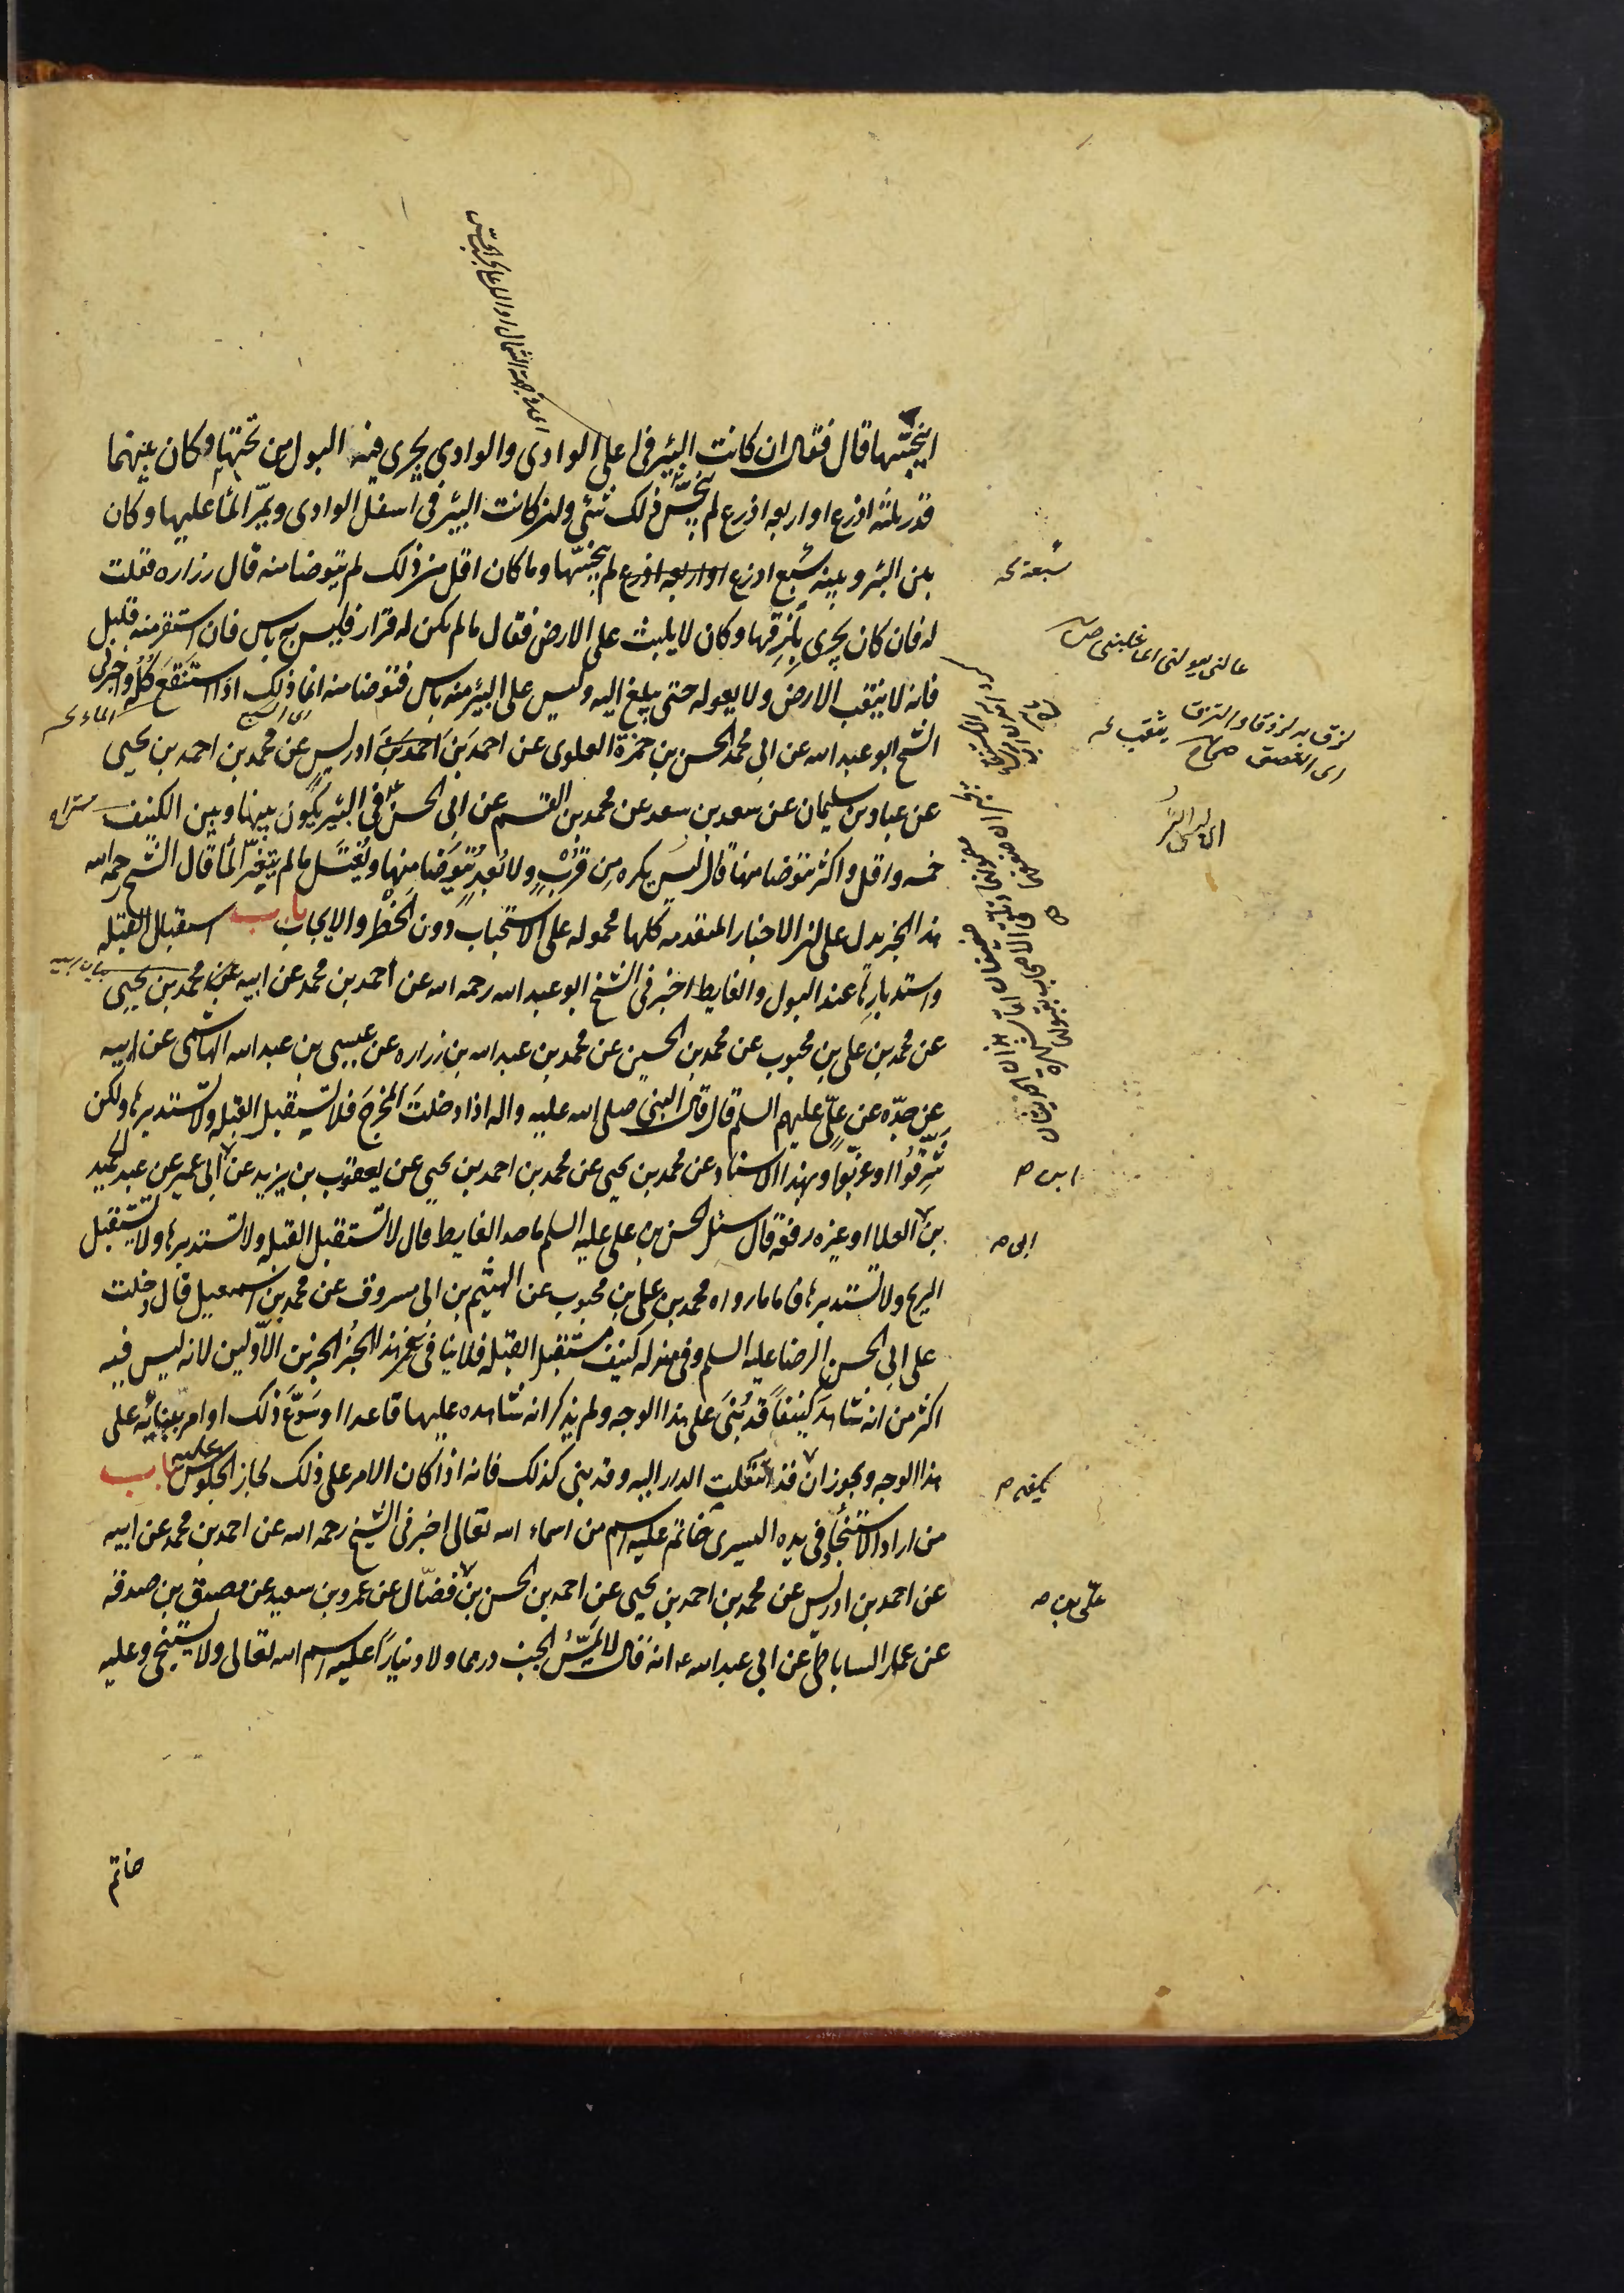 اينجّسها قال فقال ان كانت البئر فى اعلى الوادى والوادى يجرى فيه البول من تحتها وكان بينهما
قدر ثلثه اذرع او اربعه اذرع لم ينجّس ذلك شئ ولن كانت البئر فى اسفل الوادى ويمرّ الماء عليها وكان
بين البئر وبينه سبع اذرع او اربعه اذرع لم ينجّسها وما كان اقل من ذلك لم يتوضا منه قال زراره فقلت
له فان كان يجرى بلزقها وكان لا يلبث على الارض فقال ما لم يكن له قرار فليس به باس فان استقر منه قليل
فانه لا يثقب الارض ولا يعوله حتى يبلغ اليه وليس على البئر منه باس فتوضا منه انما ذلك اذا استنقع كلّه واخبرنى
الشيخ ابو عبد الله عن ابى محمد الحسن بن حمزة العلوى عن احمد بن احمد بن ادريس عن محمد بن احمد بن يحيى
عن عباد بن سليمان عن سعد بن سعد عن محمد بن القسم عن ابى الحسن ع فى البئر يكون بينها وبين الكنيف
خمسه واقل واكثر يتوضا منها قال ليس يكره من قرب ولا بُعدٍ يتوضا منها ويغتسل ما لم يتغيّر الماء قال الشيخ رحمه الله
هذا الخبر يدل على لن الاخبار المتقدمه كلها محموله على الاستحباب دون الحظر والايجاب باب استقبال القبله
واستدبارها عند البول والغايط اخبرنى الشيخ ابو عبد الله رحمه الله عن احمد بن محمد عن ابيه عن محمد بن يحيى
عن محمد بن على بن محبوب عن محمد بن الحسين عن محمد بن عبد الله بن زراره عن عيسى بن عبد الله الهاشمى عن ابيه
عن جدّه عن علىّ عليهم السلم قال قال النبى صلى الله عليه واله اذا دخلتَ المخرجَ فلا تستقبل القبله ولا تستدبرها ولكن
شرّقوا او غرّبوا وبهذا الاسناد عن محمد بن يحيى عن محمد بن احمد بن يحيى عن يعقوب بن يزيد عن ابى عمير عن عبد الحميد
بن العلا او غيره رفعه قال سئل الحسن بن على عليه السلم ما حد الغايط قال لا تستقبل القبله ولا تستدبرها ولا تستقبل
الريح ولا تستدبرها فاما ما رواه محمد بن على بن محبوب عن الهيثم بن ابى مسروق عن محمد بن اسمعيل قال دخلت
على ابى الحسن الرضا عليه السلم وفى منزله كنيف مستقبل القبله فلا ينافى هذا الخبر الخبرين الاولين لانه ليس فيه
اكثر من انه شاهد كنيفاً قد بُنىَ على هذا الوجه ولم يذكر انه شاهده عليها قاعدا او سَوّغ ذلك او امر ببنائه على
هذا الوجه ويجوز ان قد انتقلت الدار اليه وقد بنى كذلك فانه اذا كان الامر على ذلك لجاز الجلوس عليه باب
من اراد الاستنجاء وفى يده اليسرى خاتم عليه اسم من اسماء الله تعالى اخبرنى الشيخ رحمه الله عن احمد بن محمد عن ابيه
عن احمد بن ادريس عن محمد بن احمد بن يحيى عن احمد بن الحسن بن فضّال عن عمرو بن سعيد عن مصدق بن صدقه
عن عمار الساباطى عن ابى عبد الله ع انه قال لا يمسّ الجنب درهما ولا دينارا عليه اسم الله تعالى ولا يستنجى وعليه
خاتم
سبعة
عالنى يعولنى اى غلبنى صحاح
لزق به لزوقا والتزق
اى التصق صحاح
يثقب
ابن
ابى
كنيفه
على بن
الماء